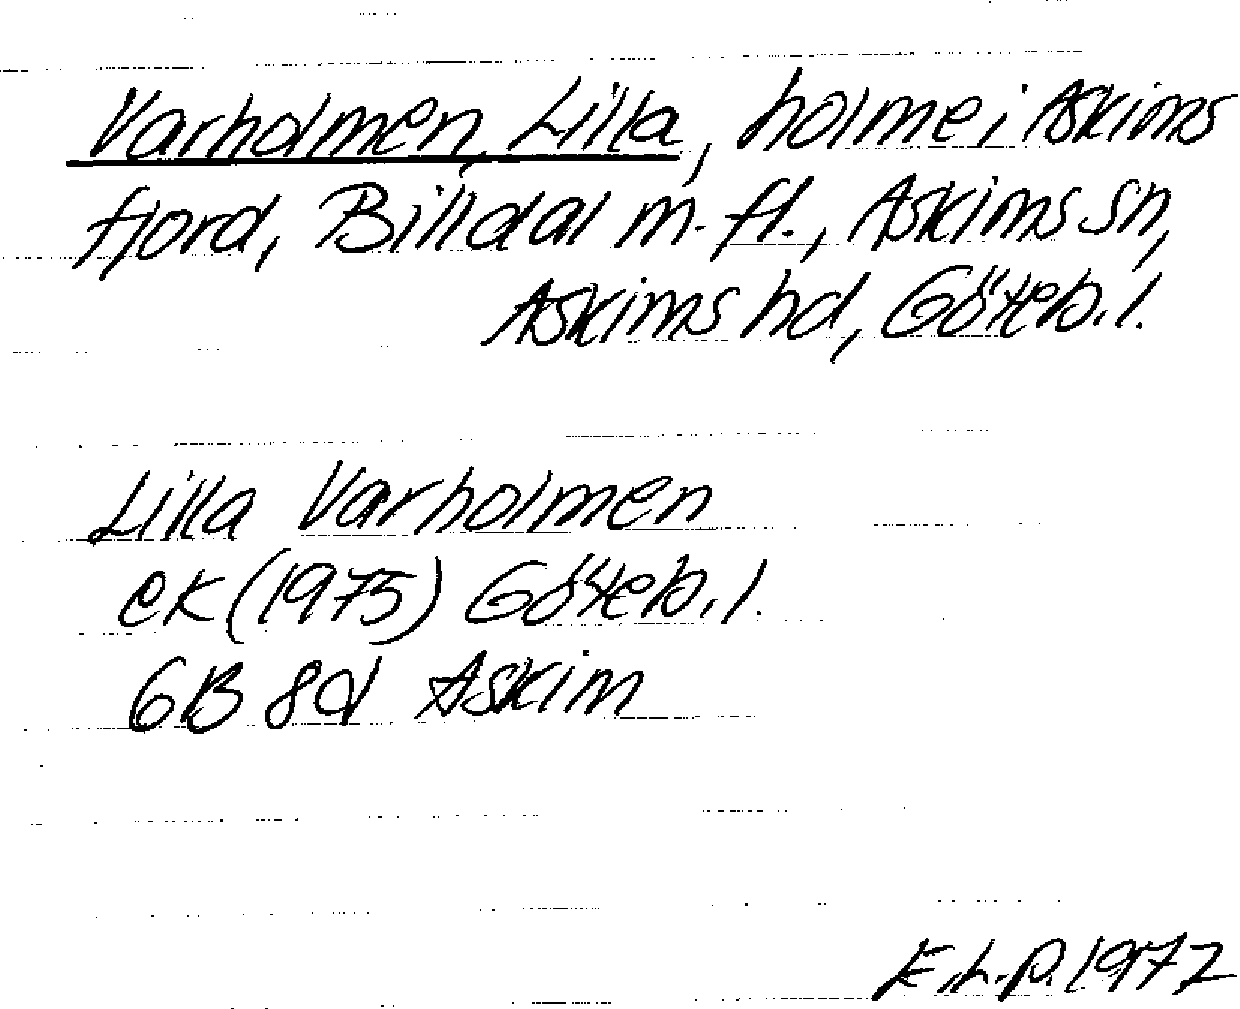 Varholmen, Lilla, holme i Askims
fjord, Billdal m.fl., Askims sn,
Askims hd, Göteb. l.
Lilla Varholmen
ek (1975) Göteb. l.
6B 8d Askim
E.L.P. 1977